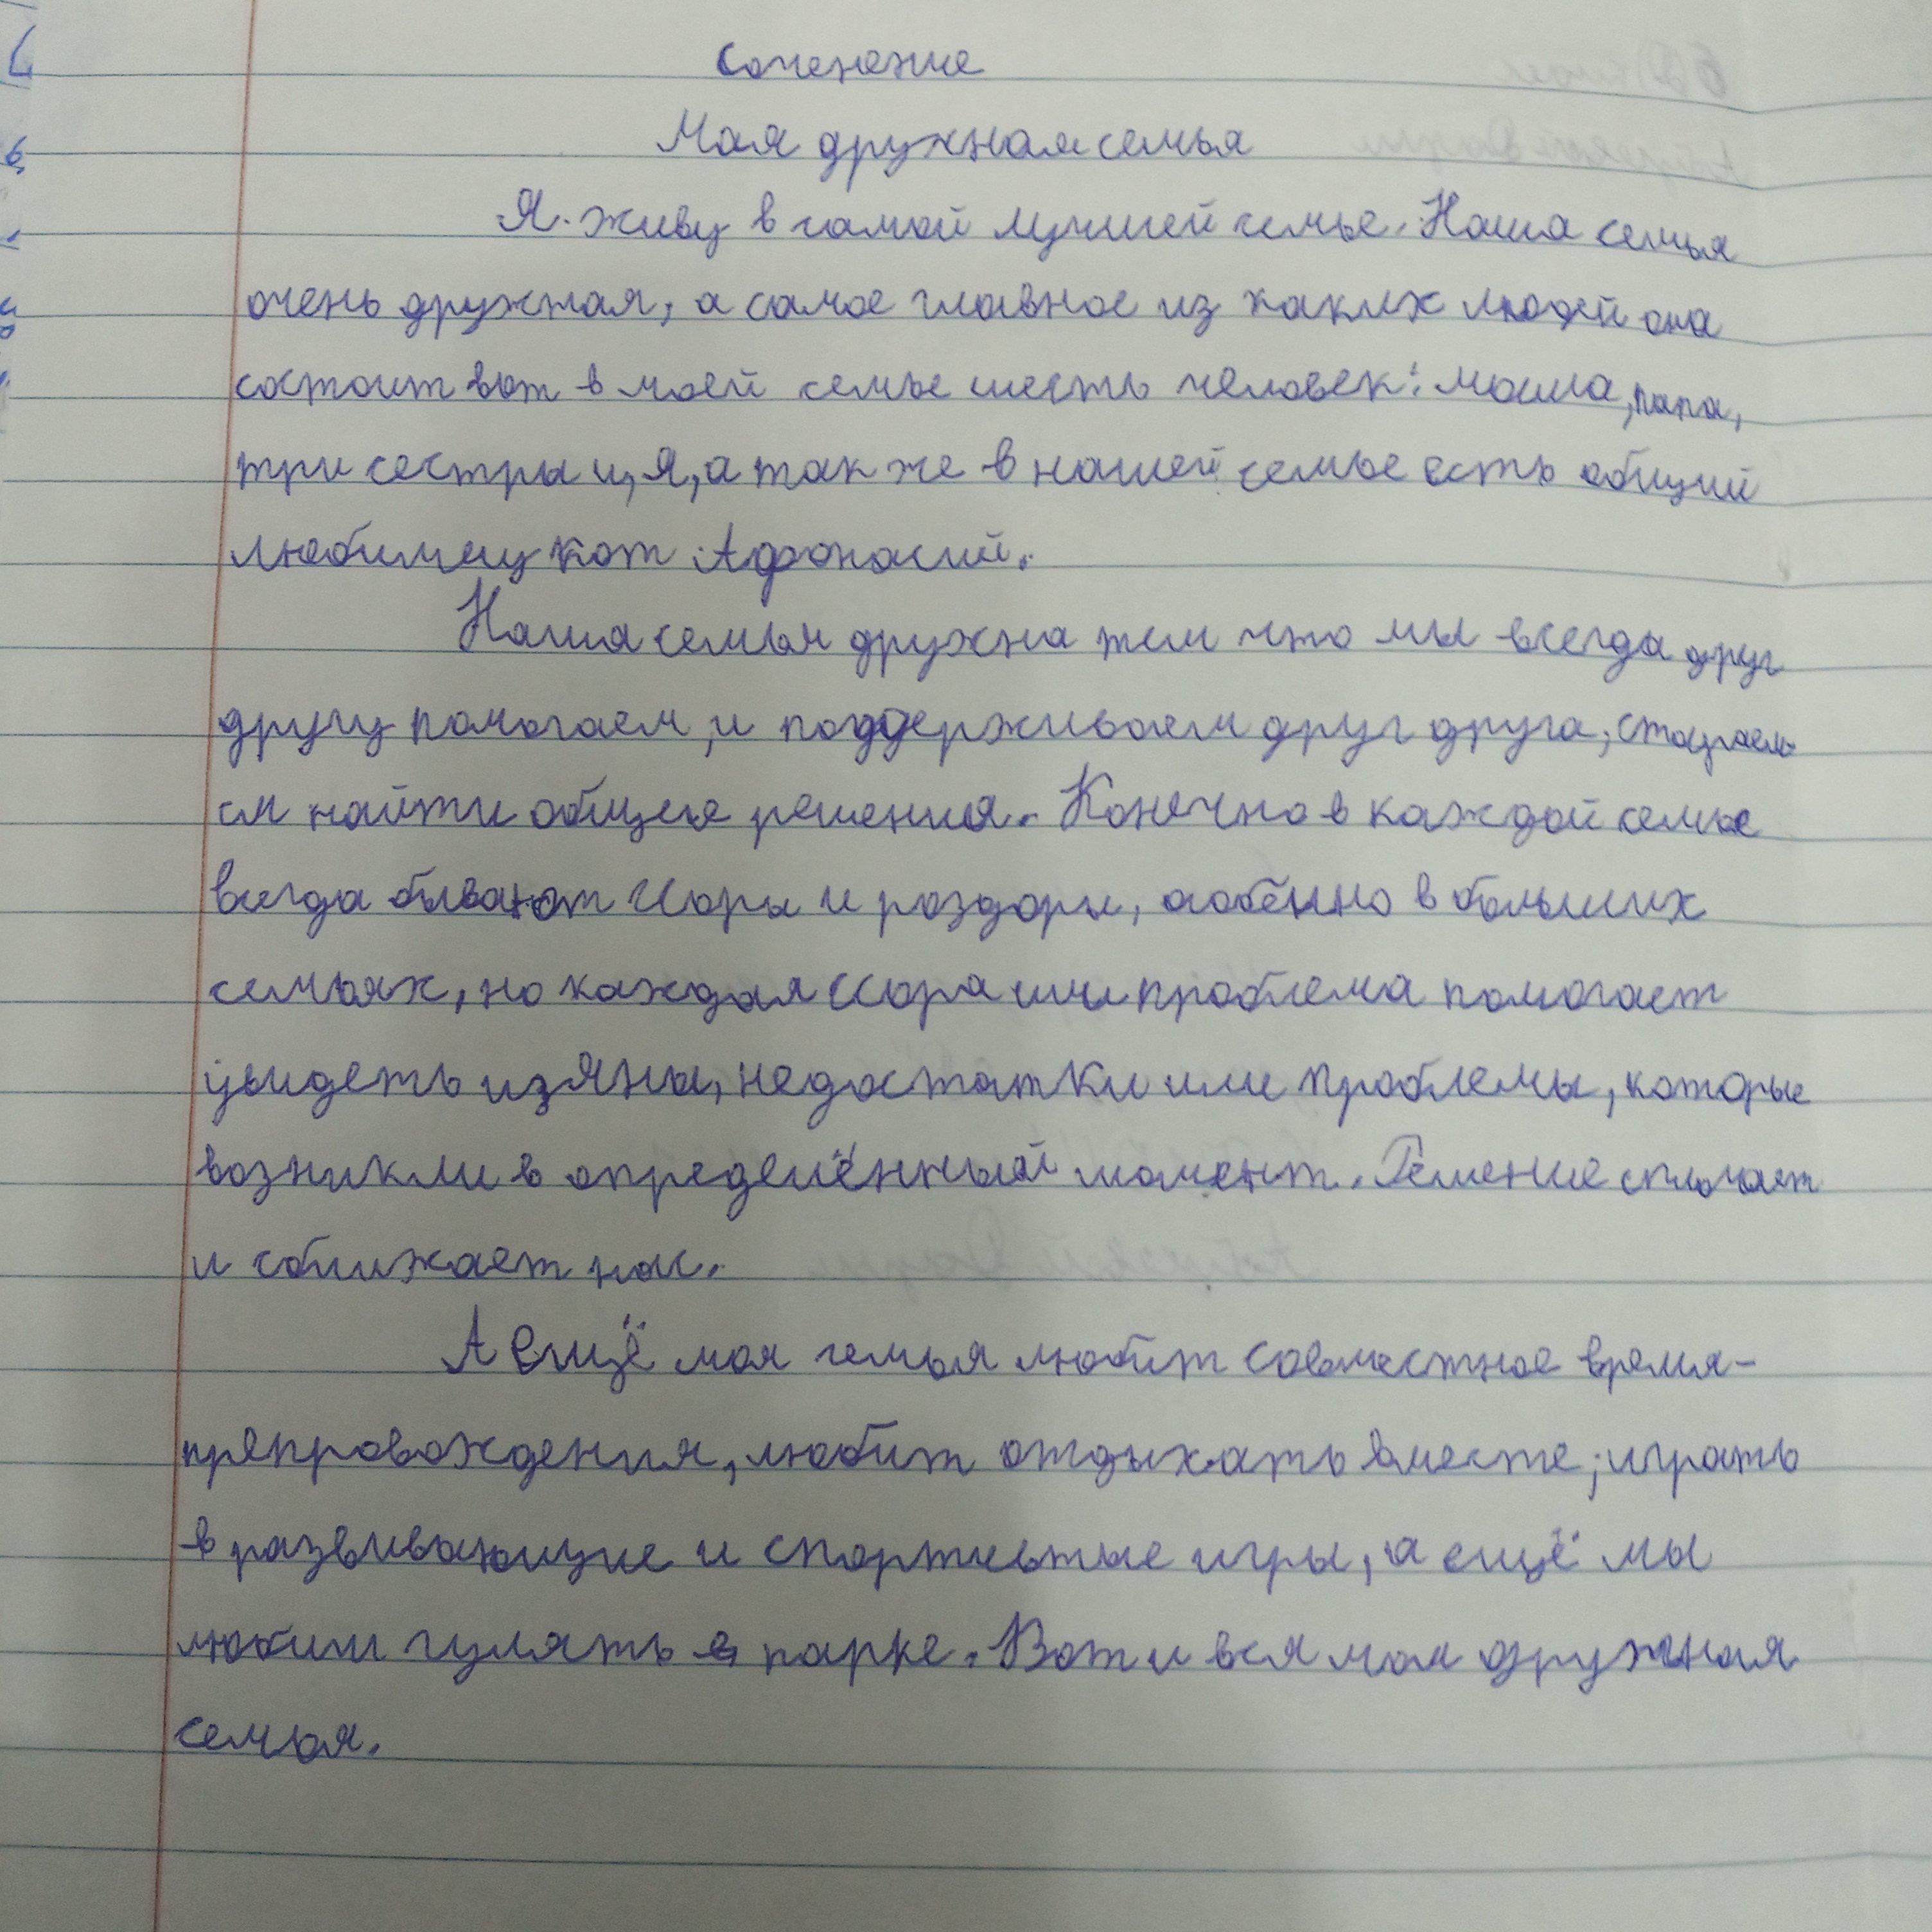 Соченение
Мая дружная семья
Я живу в самой лучшей семье. Наша семья
очень дружная, а самое главное из каких людей она
состоит вот в моей семье шесть человек: мама, папа,
три сестры и, я, а так же в нашей семье есть общий
любимец кот Афонасий.
Наша семья дружна тем что мы всегда друг
другу помогаем, и поддерживаем друг друга, стараем-
ся найти общее решения. Конечно в каждой семье
всегда бывают ссоры и роздоры, особенно в больших
семьях, но каждая ссора или проблема помогает
увидеть изяны, недостатки или проблемы, которые
возникли в определённый момент. Решение сплочает
и сближает нас.
А ещё моя семья любит совместное время-
препровождения, любит отдыхать вместе, играть
в развивающие и спортивные игры, а ещё мы
любим гулять в парке. Вот и вся моя дружная
семья.